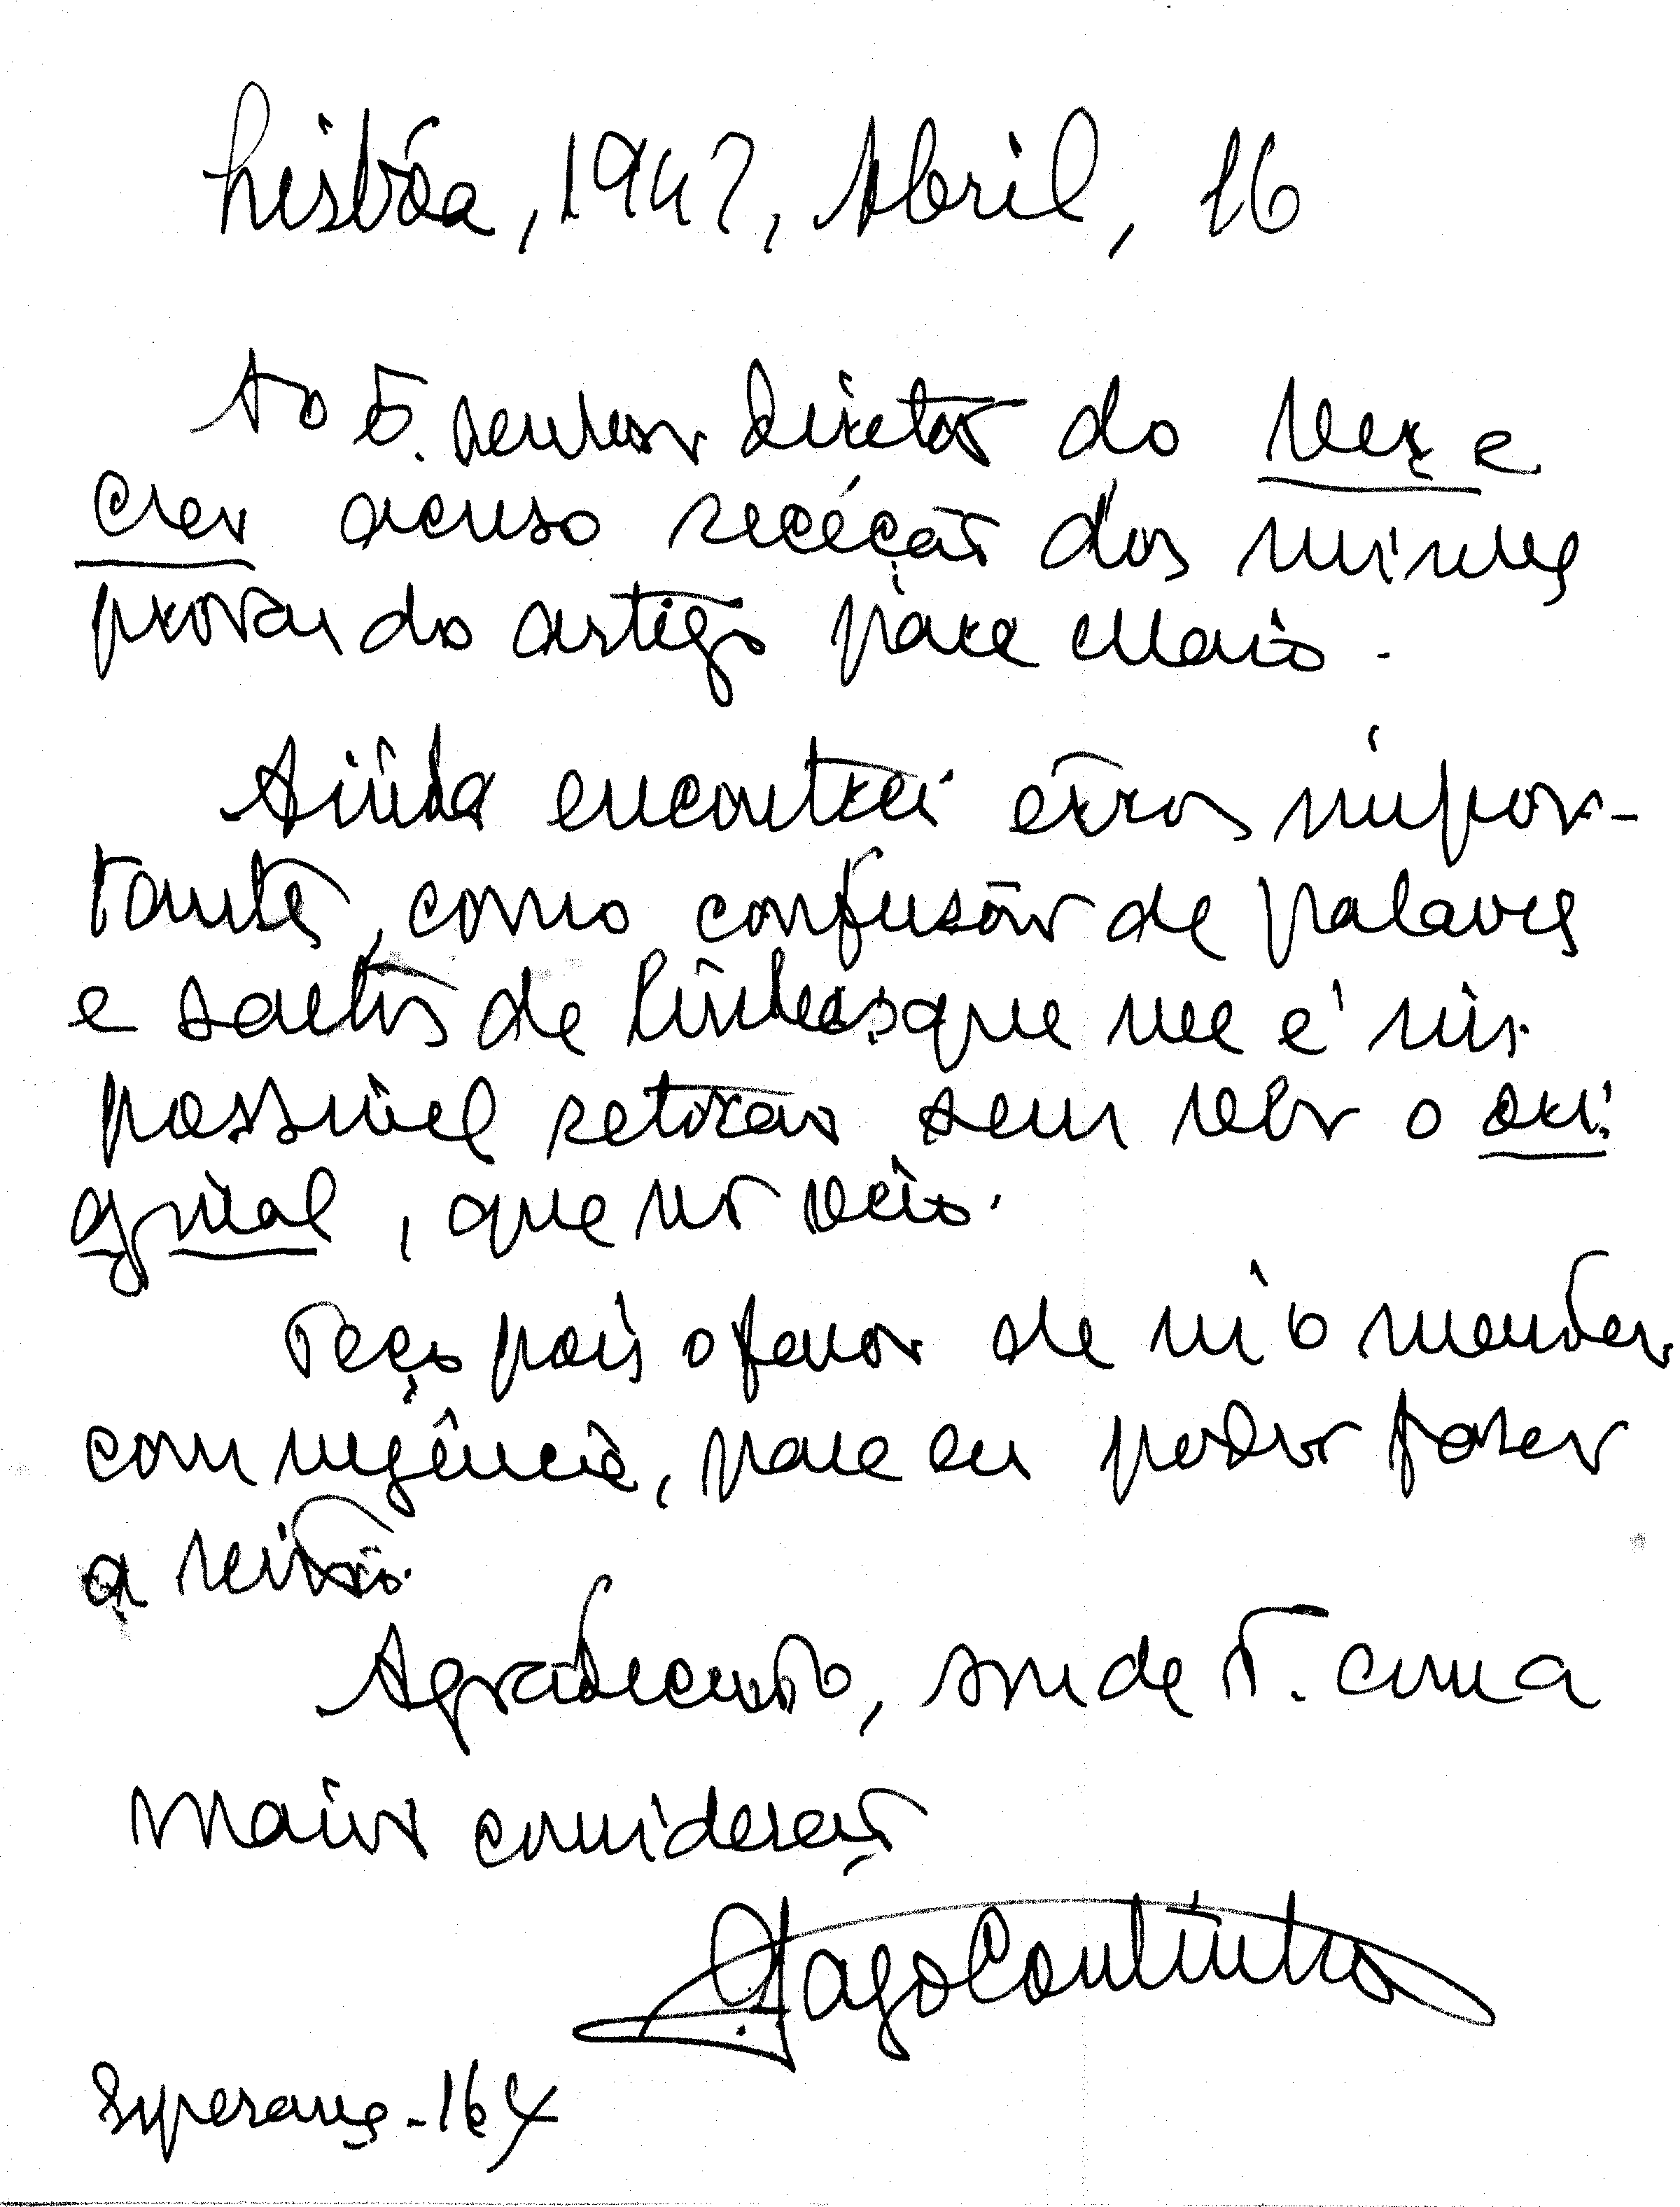 Lisbôa, 1947, Abril, 16
Ao senhor diretor do Ver e
crer acuso receção das minhas
provas do artigo para Maio.
Ainda encontrei êrros impor-
tantes, como confusão de palavras
e saltos de linhas que me é im-
possível retocar sem ver o ori-
ginal, que não veio.
Peço pois o favor de m'o mandar
com urgência, para eu poder fazer
a revisão.
Agradecendo, sou de V. com a
maior consideração
Gago Coutinho
Esperança - 164